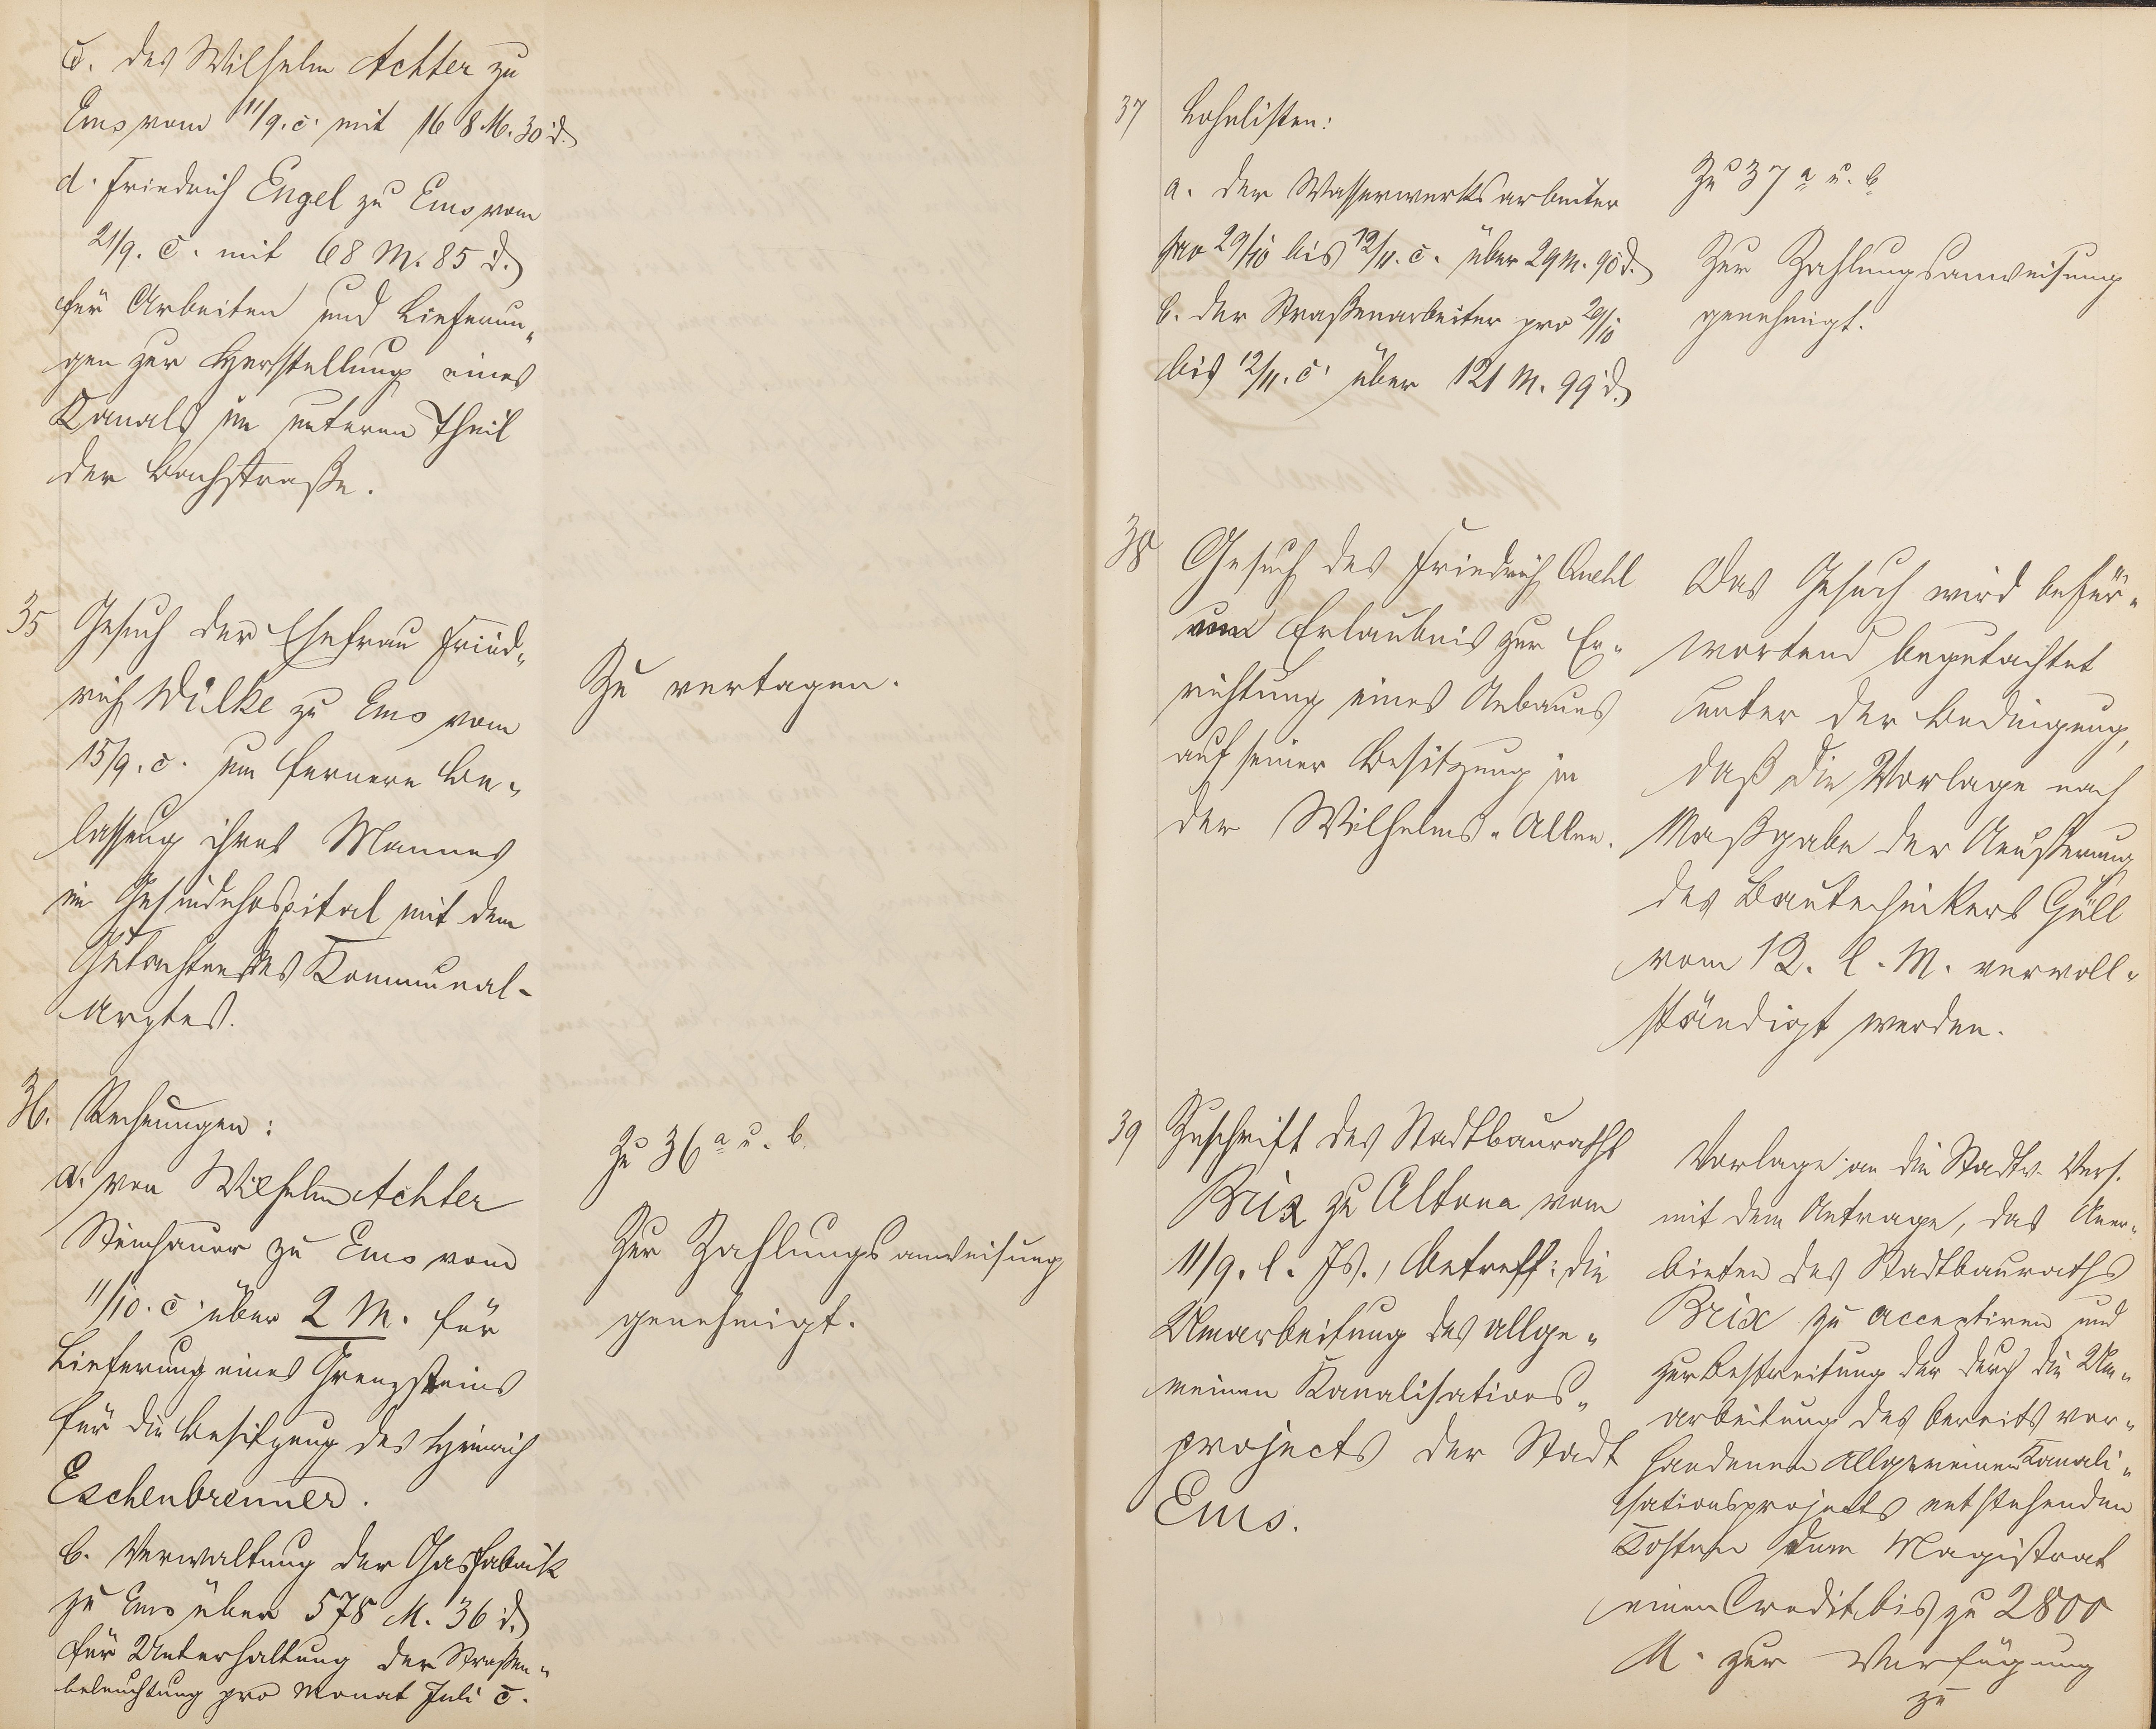 c. des Wilhelm Achter zu
Ems vom 11/9. c. mit 168 M. 30 d.
d. Friedrich Engel zu Ems vom
21/9. c. mit 68 M. 85 d.
für Arbeiten und Lieferun-
gen zur Herstellung eines
Kanals im unteren Theil
der Bachstraße.
35 Gesuch der Ehefrau Fried-
rich Wilke zu Ems vom
15/9. c. um fernere Be-
lassung ihres Mannes
im Gesindehospital mit dem
Gutachten des Kommunal-
arztes.
Zu vertagen.
36. Rechnungen:
a. von Wilhelm Achter
Steinhauer zu Ems vom
11/10. c. über 2 M. für
Lieferung eines Grenzsteins
für die Besitzung des Heinrich
Eschenbrenner.
b. Verwaltung der Gasfabrik
zu Ems über 578 M. 36 d.
für Unterhaltung der Straßen-
beleuchtung pro Monat Juli c.
Zu 36 a u. b.
Zur Zahlungsanweisung
genehmigt.
37 Lohnlisten:
a. der Wasserwerksarbeiter
pro 29/10 bis 12/11. c. über 29 M. 90 d.
b. der Straßenarbeiter pro 29/10
bis 12/11. c. über 121 M. 99 d.
Zu 37 a u. b
Zur Zahlungsanweisung
genehmigt.
38 Gesuch des Friedrich
um Erlaubnis zur Er-
richtung eines Anbaues
auf seiner Besitzung in
der Wilhelms-Allee.
Das Gesuch wird befür-
wortend begutachtet
unter der Bedingung,
daß die Vorlage nach
Maßgabe der Aeußerung
des Bautechnikers Güll
vom 12. l. M. vervoll-
ständigt werden.
39 Zuschrift des Stadtbauraths
Brix zu Altona vom
11/9. l. Js., betreff: die
Umarbeitung des allge-
meinen Kanalisations-
projects der Stadt
Ems.
Vorlage an die Stadtv. Vers.
mit dem Antrage, das Aner-
bieten des Stadtbauraths
Brix zu acceptiren und
zur Bestreitung der durch die Um-
arbeitung des bereits vor-
handenen allgemeinen Kanali-
sationsprojects entstehenden
Kosten dem Magistrat
einen Credit bis zu 2800
M. zur Verfügung
zu